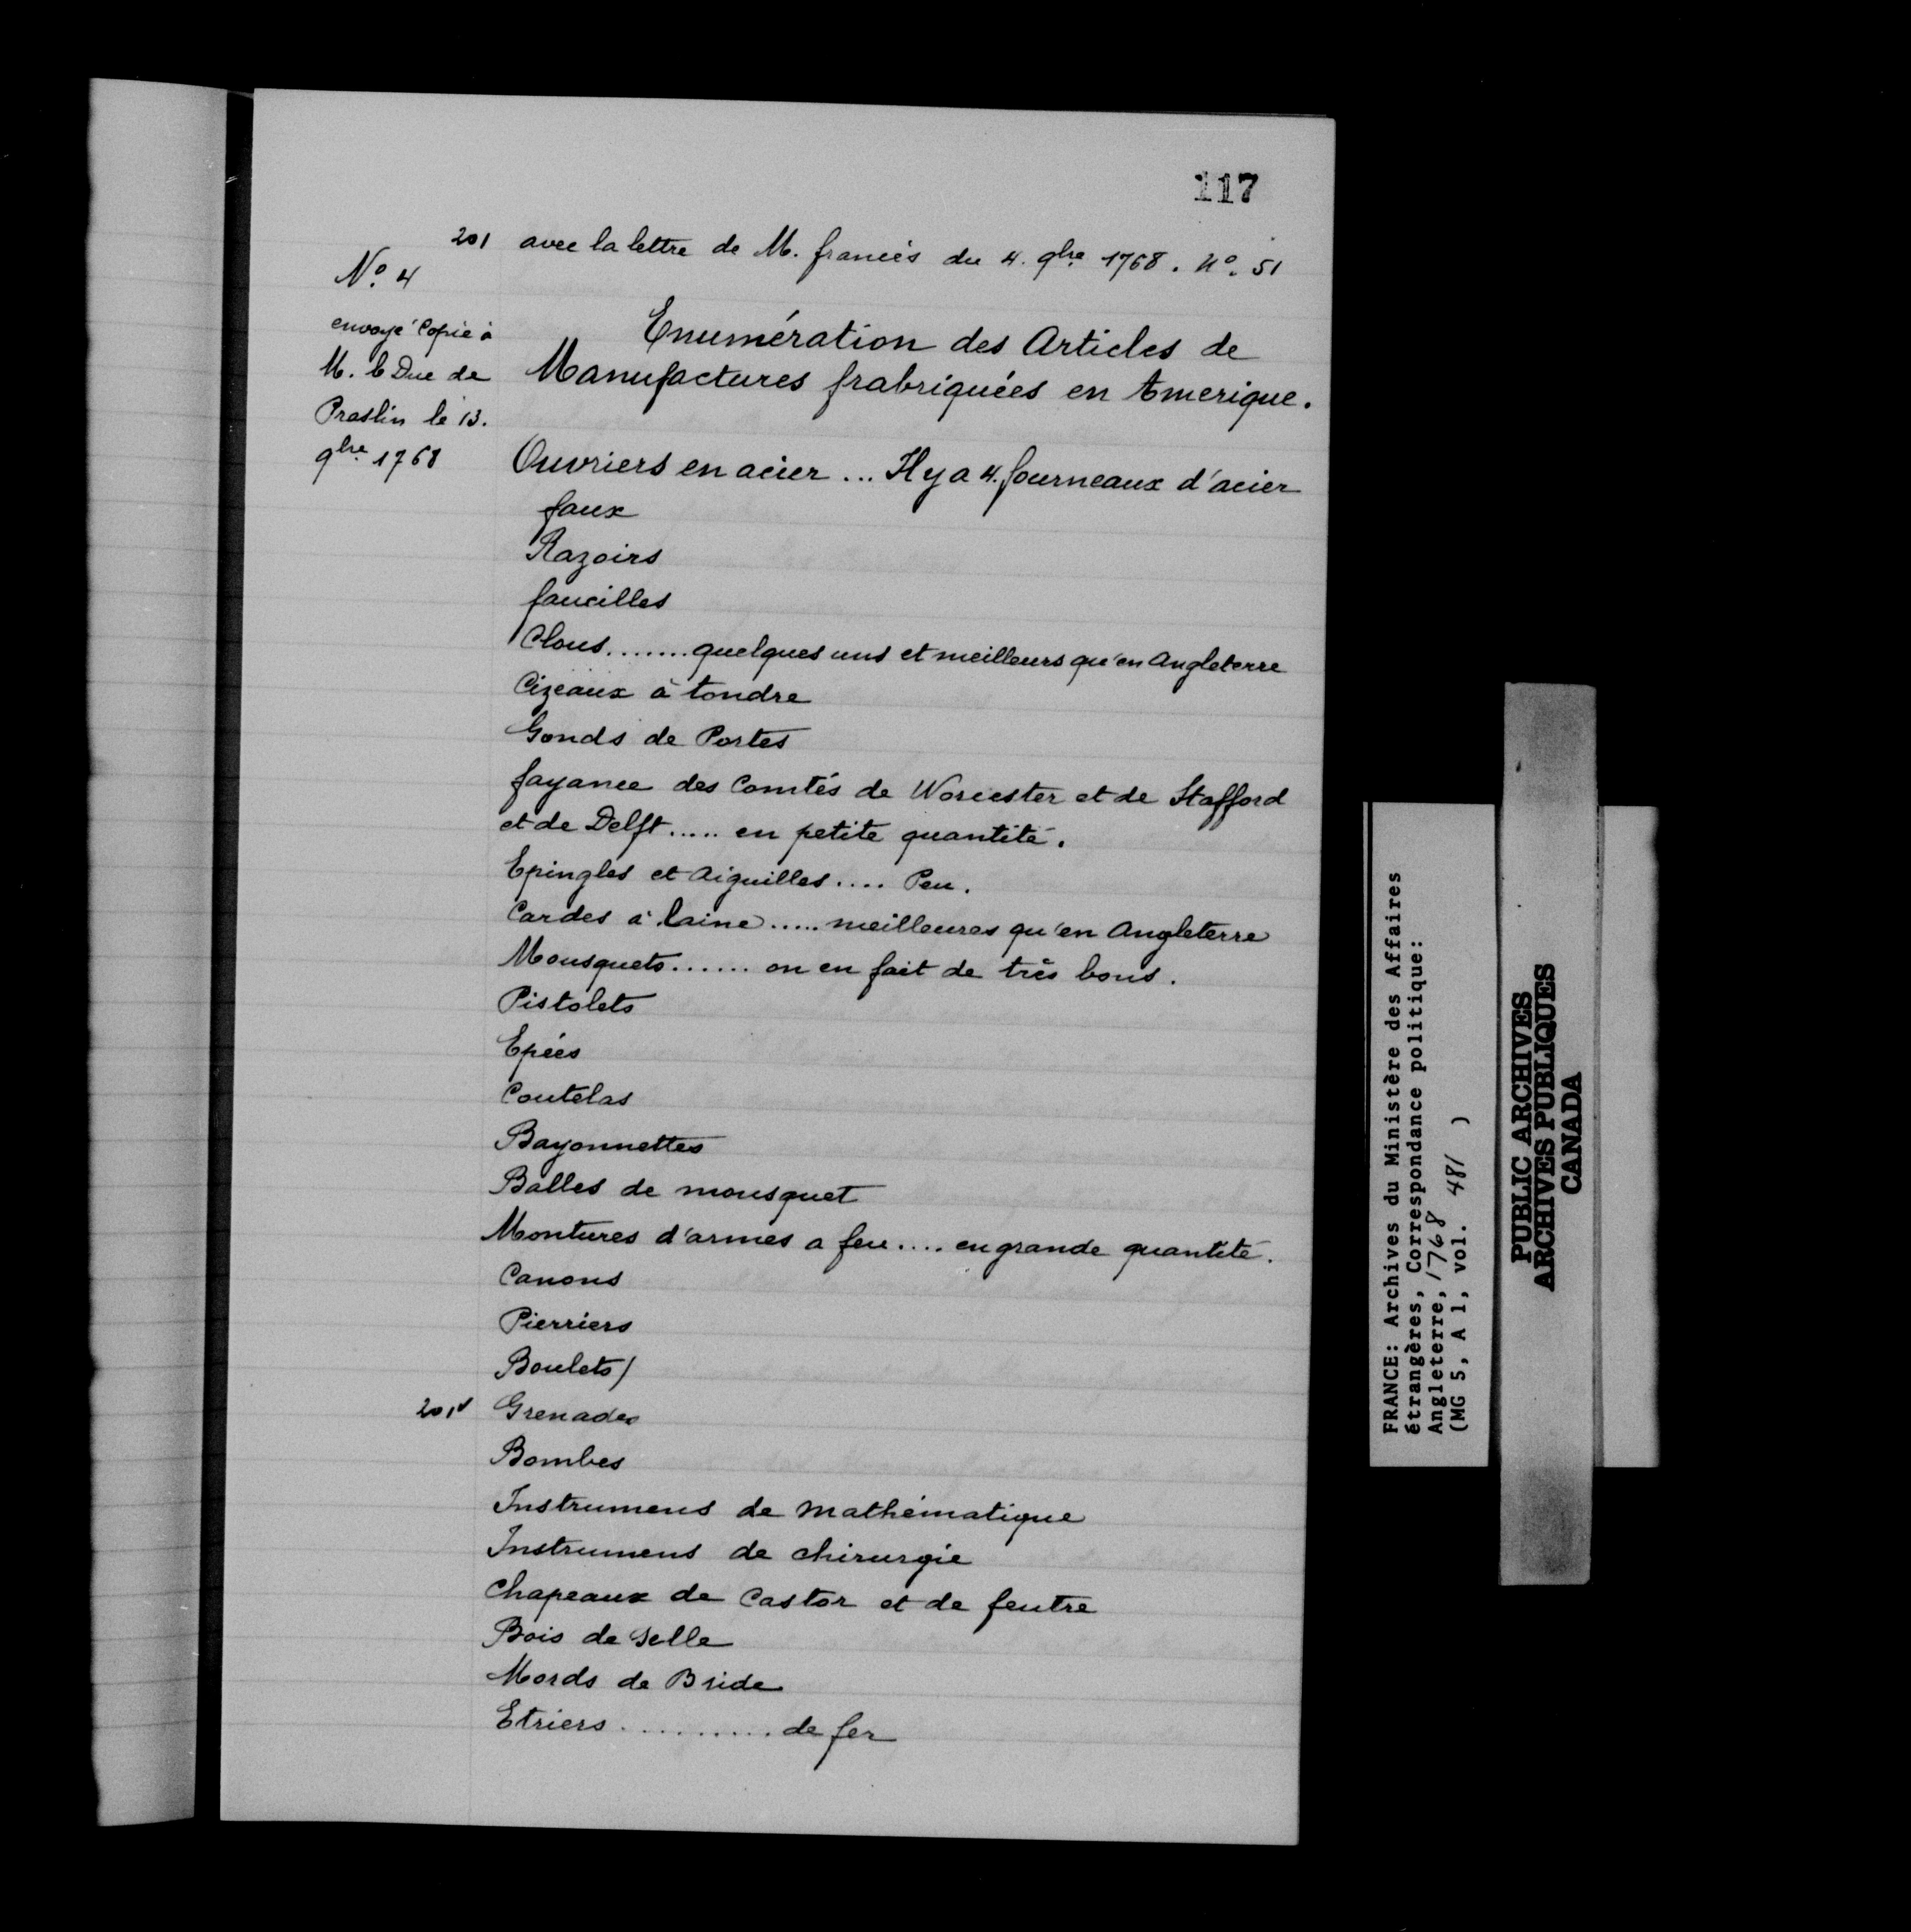 117
201 avec la lettre de M. francés du 4. 9bre 1768. N°. 51
N°. 4
envoyé Copie à
M. le Duc de
Praslin le 13.
9bre 1768
Enumération des Articles de
Manufactures frabriquées en Amerique.
Ouvriers en acier ... Il y a 4. fourneaux d'acier
faux
Razoirs
faucilles
Clous ....... quelques uns et meilleurs qu'en Angleterre
Cizeaux à tondre
Gonds de Portes
fayance des Comtés de Worcester et de Stafford
et de Delft ..... en petite quantité.
Epingles et Aiguilles .... Peu.
Cardes à laine ..... meilleures qu'en Angleterre
Mousquets ...... on en fait de très bons.
Pistolets
Epées
Coutelas
Bayonnettes
Balles de mousquet
Montures d'armes a feu .... en grande quantité.
Canons
Pierriers
Boulets/
201v Grenades
Bombes
Instrumens de Mathématique
Instrumens de chirurgie
Chapeaux de Castor et de feutre
Bois de Selle
Mords de Bride
Etriers .......... de fer
FRANCE: Archives du Ministère des Affaires
étrangères, Correspondance politique:
Angleterre, 1768
(MG 5, A 1, vol. 481 )
PUBLIC ARCHIVES
ARCHIVES PUBLIQUES
CANADA